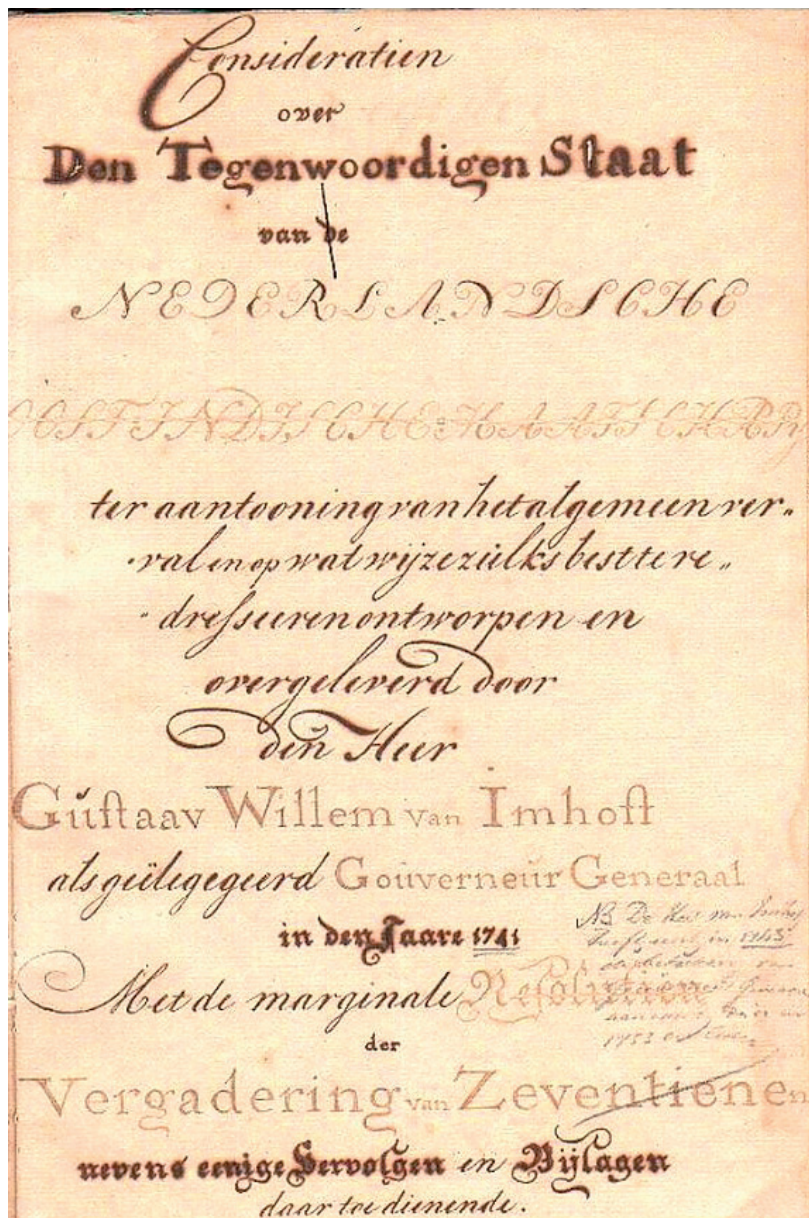 Consideratien
over
Den Tegenwoordigen Staat
van de
NEDERLANDSCHE
OOST-INDISCHE MAATSCHAPPY
ter aantooning van het algemeen ver„
val en op wat wijze zulks best te re„
dresseeren ontworpen en
overgeleverd door
den Heer
Gustaav Willem van Imhoff
als gedelegeerd Gouverneur Generaal
in den Jaare 1741
Met de marginale Resolutien
der
Vergadering van Zeventienen
nevens eenige Vervolgen en Bijlagen
daar toe dienende.
NB De Heer
heeft eerst in 1743
1753